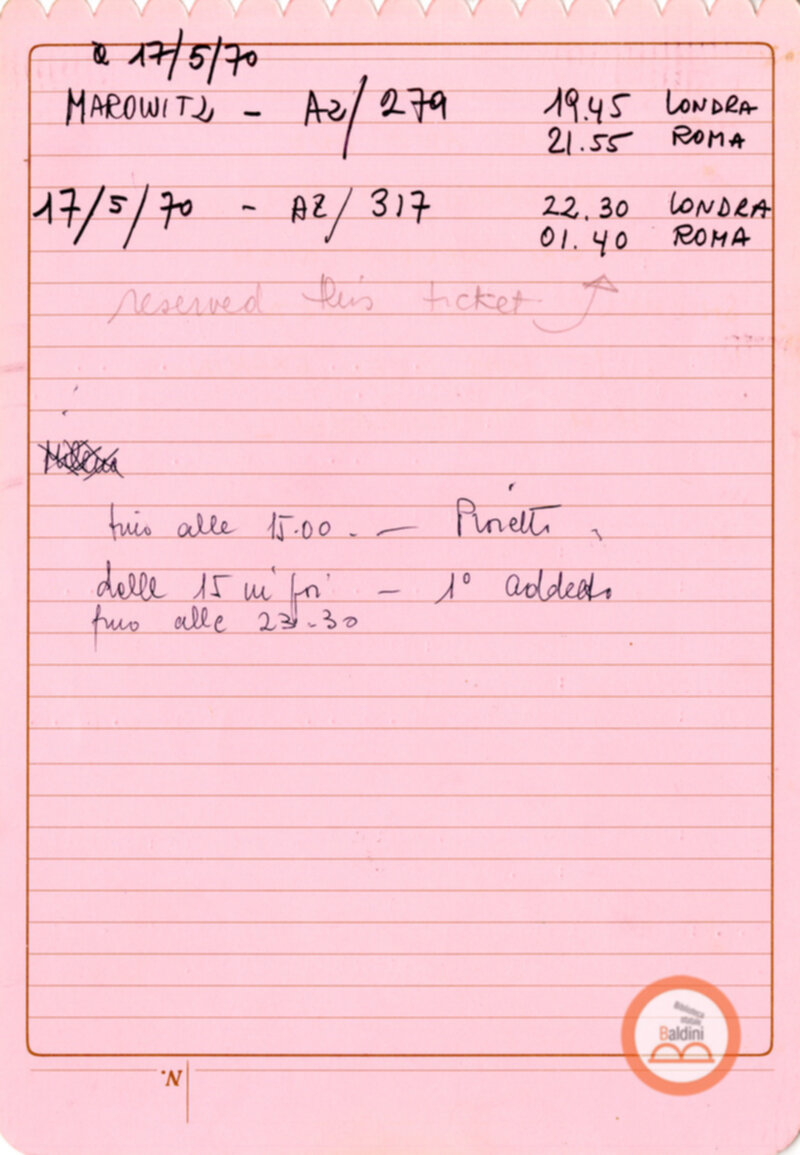 17/5/70
MAROWITZ - AZ/279 19.45 LONDRA
21.55 ROMA
17/5/70 - AZ/317 22.30 LONDRA
01.40 ROMA
reserved this ticket
fino alle 15.00. — Proietti
dalle 15 in poi — 1°
fino alle 23.30
Biblioteca
statale
Baldini
N.